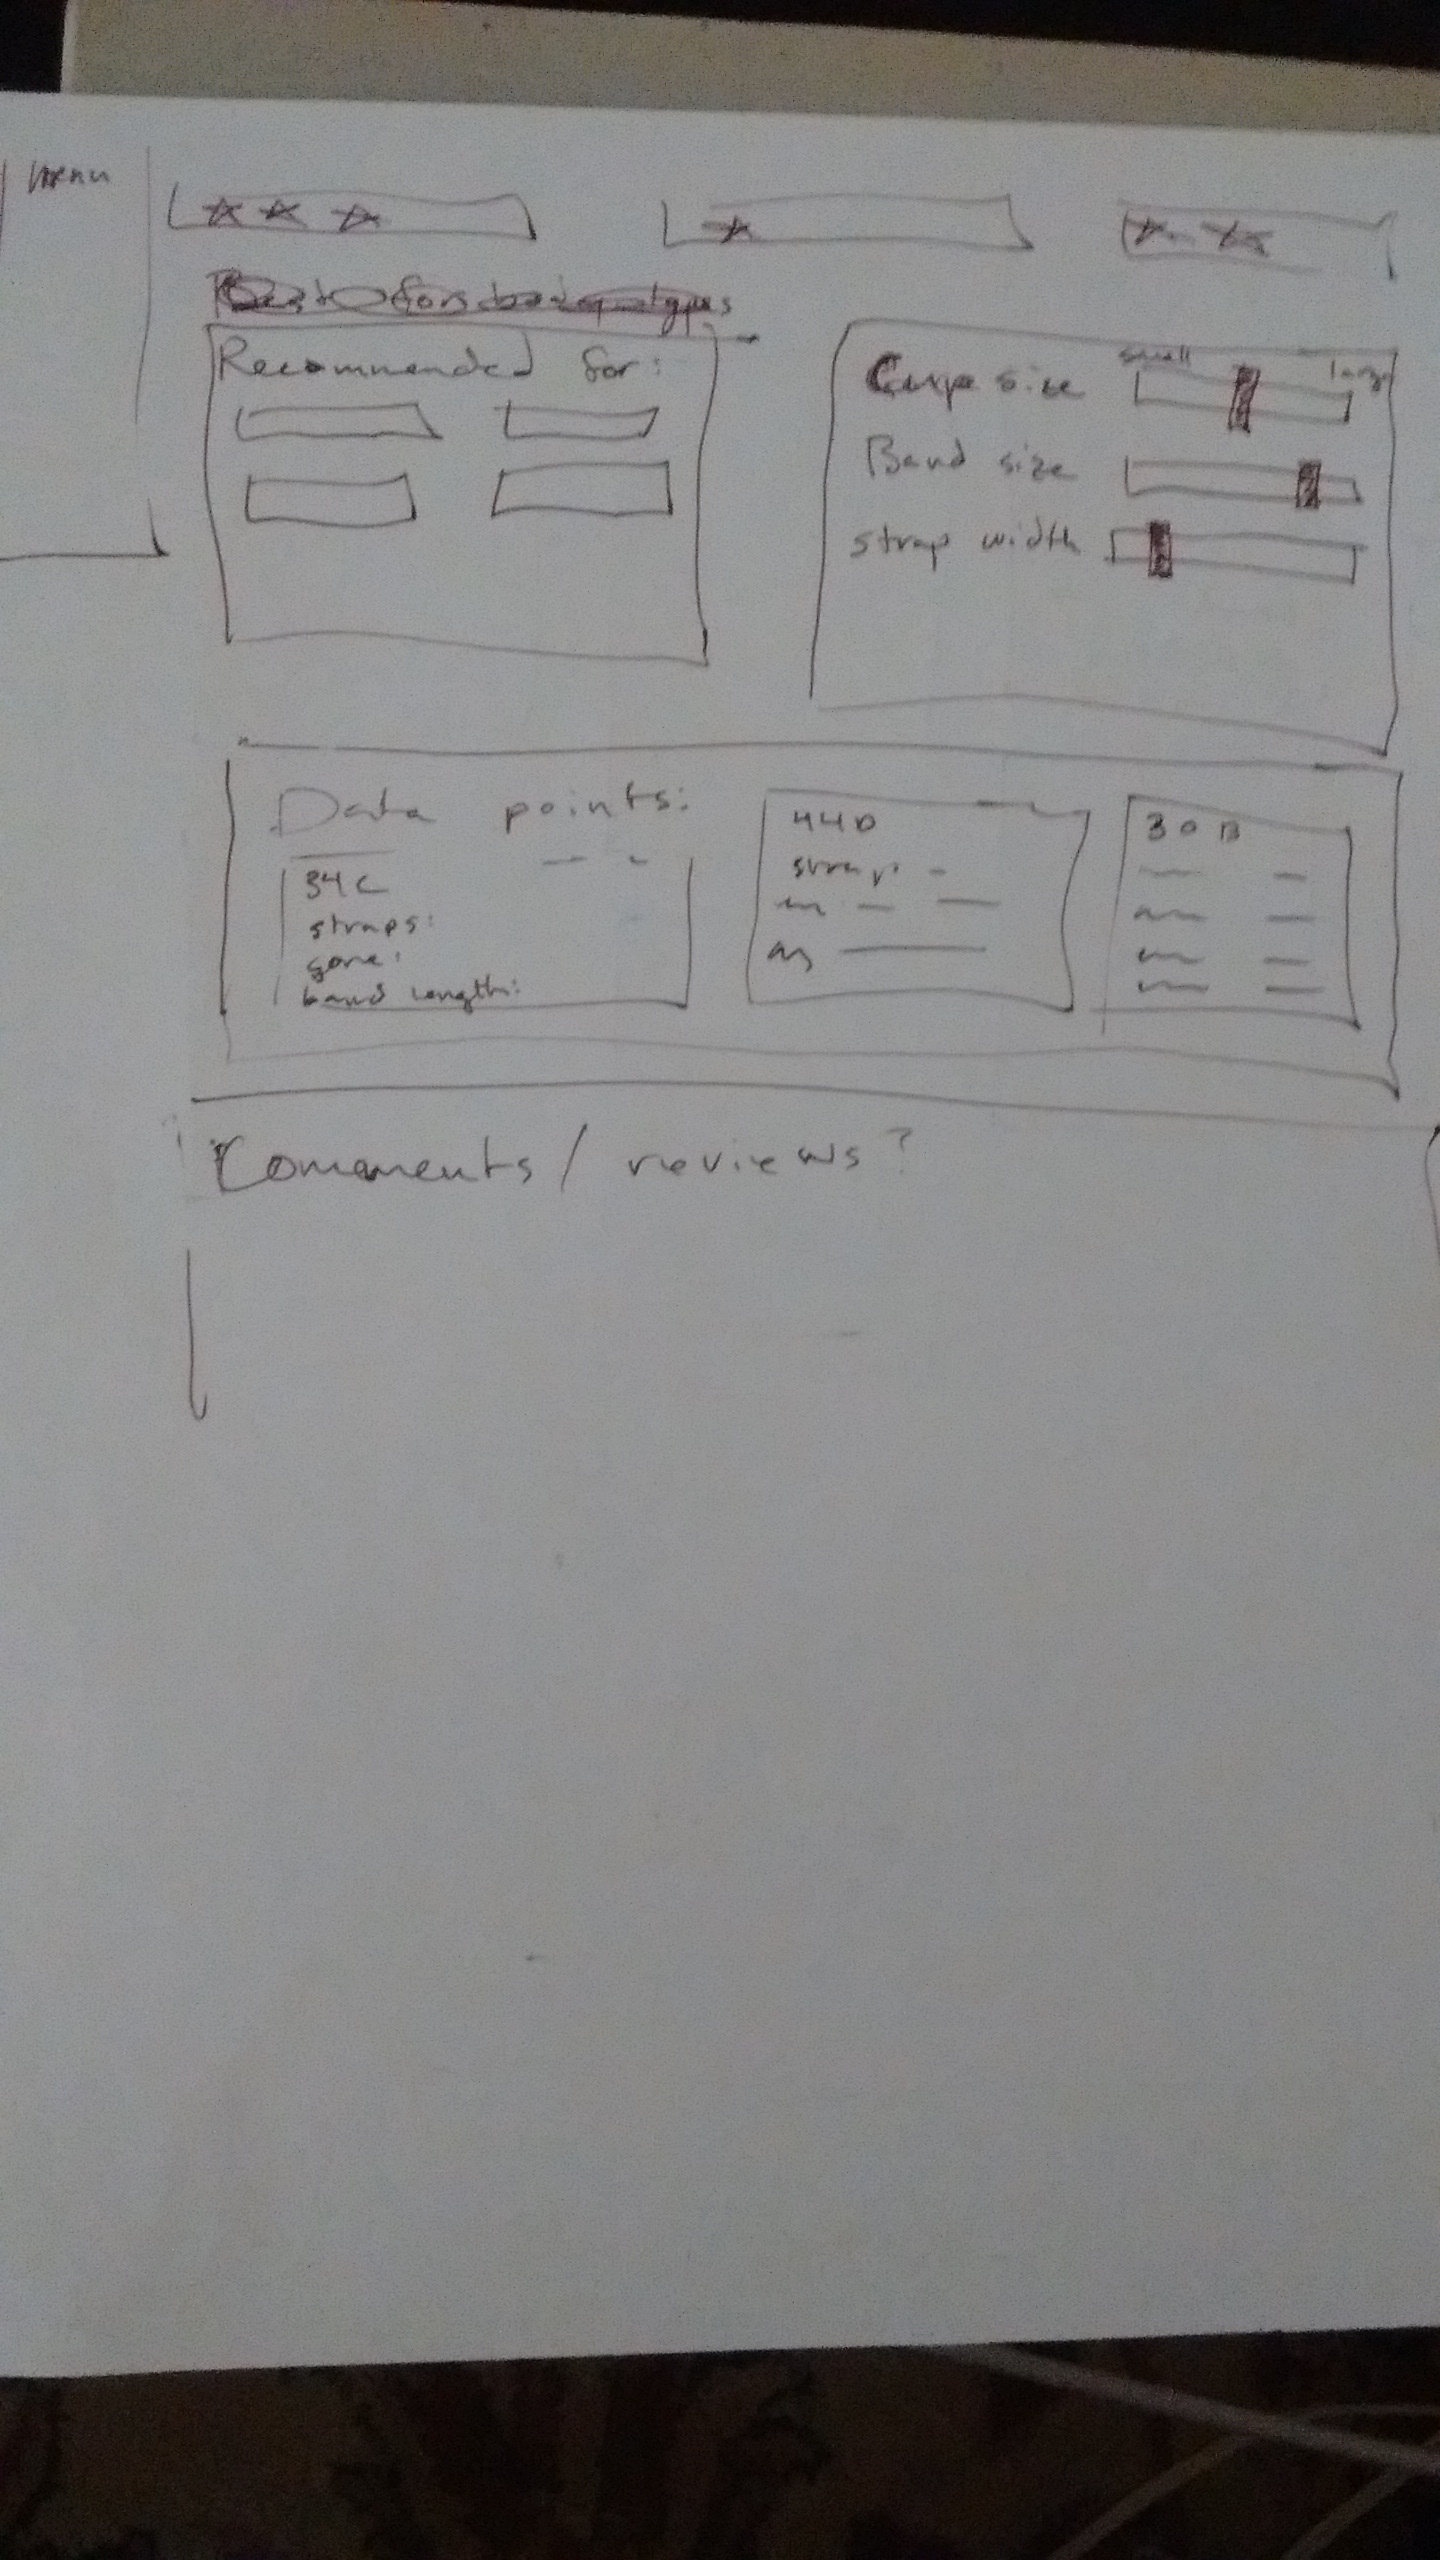 menu
Recommended for:
small large
Cup size
Band size
strap width
Data points:
34C
straps:
gore:
band length:
44D
strap
30B
Comments / reviews?